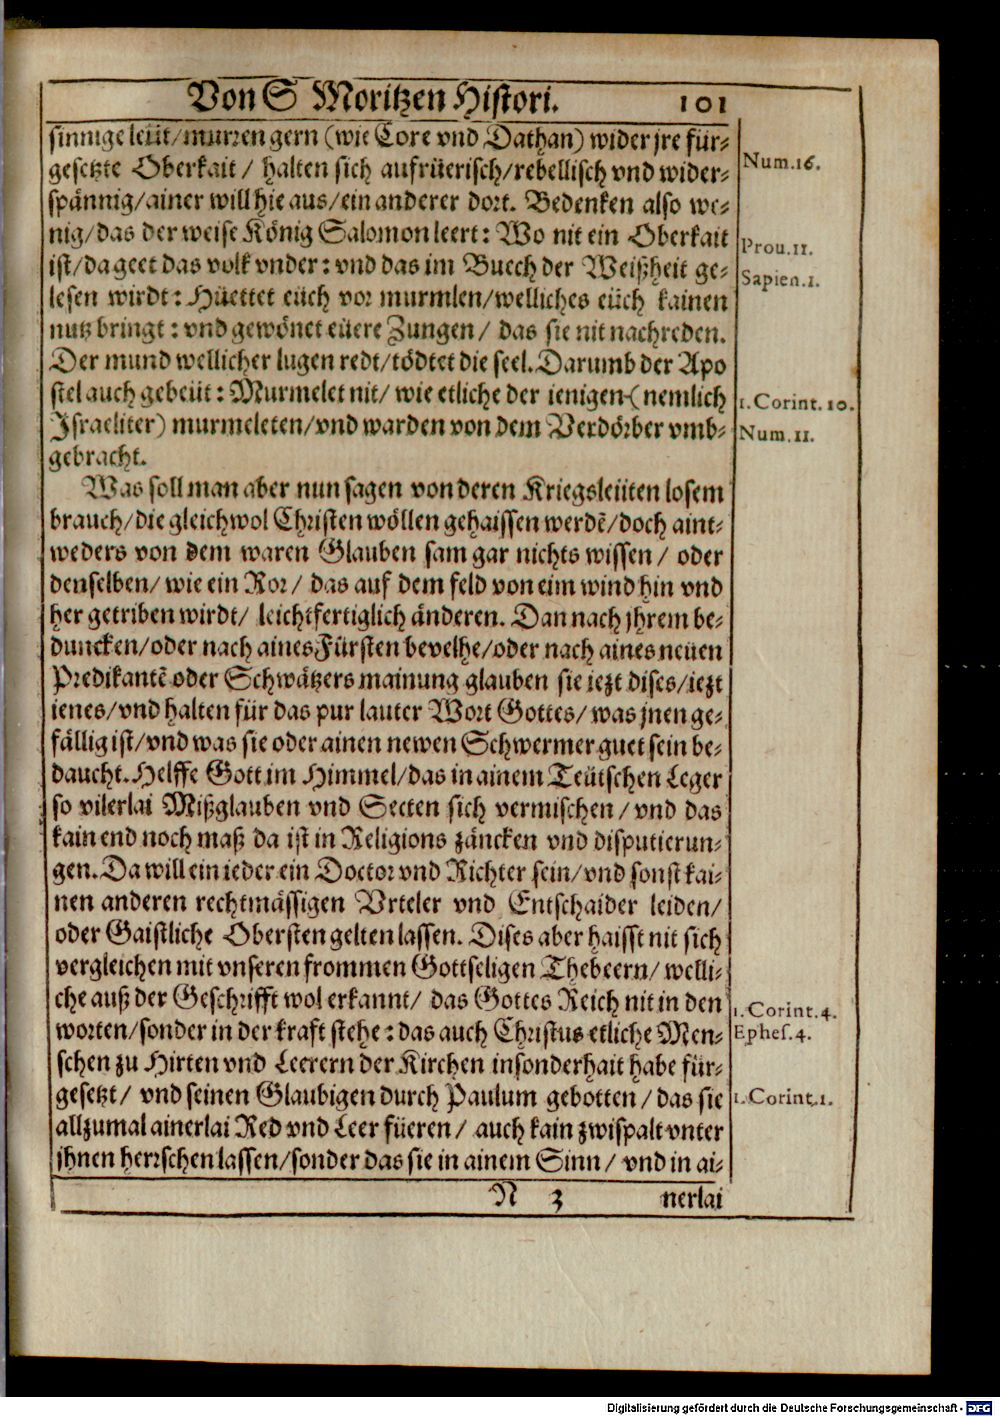 Von S Moritzen Histori. 101
sinnige leüt/murren gern (wie Core vnd Dathan) wider jre für-
gesetzte Oberkait / halten sich aufrüerisch/rebellisch vnd wider-
spännig/ainer will hie aus/ein anderer dort. Bedenken also we-
nig/das der weise König Salomon leert: Wo nit ein Oberkait
ist/da geet das volk vnder: vnd das im Buech der Weißheit ge-
lesen wirdt: Hüettet eüch vor murmlen/welliches eüch kainen
nutz bringt: vnd gewönet eüere Zungen / das sie nit nachreden.
Der mund wellicher lugen redt/tödtet die seel. Darumb der Apo
stel auch gebeüt: Murmelet nit/ wie etliche der ienigen (nemlich
Israeliter) murmeleten/vnd warden von dem Verdörber vmb-
gebracht.
Was soll man aber nun sagen von deren Kriegsleüten losem
brauch/die gleichwol Christen wöllen gehaissen werdē/doch aint-
weders von dem waren Glauben sam gar nichts wissen / oder
denselben/ wie ein Ror/ das auf dem feld von eim wind hin vnd
her getriben wirdt/ leichtfertiglich änderen. Dan nach jhrem be-
duncken/oder nach aines Fürsten bevelhe/oder nach aines neüen
Predikantē oder Schwätzers mainung glauben sie iezt dises/iezt
ienes/vnd halten für das pur lauter Wort Gottes/was jnen ge-
fällig ist/vnd was sie oder ainen newen Schwermer guet sein be-
daucht. Helffe Gott im Himmel/das in ainem Teütschen Leger
so vilerlai Mißglauben vnd Secten sich vermischen / vnd das
kain end noch maß da ist in Religions zäncken vnd disputierun-
gen. Da will ein ieder ein Doctor vnd Richter sein/vnd sonst kai-
nen anderen rechtmässigen Vrteler vnd Entschaider leiden/
oder Gaistliche Obersten gelten lassen. Dises aber haisst nit sich
vergleichen mit vnseren frommen Gottseligen Thebeern/ welli-
che auß der Geschrifft wol erkannt/ das Gottes Reich nit in den
worten/sonder in der kraft stehe: das auch Christus etliche Men-
schen zu Hirten vnd Leerern der Kirchen insonderhait habe für-
gesetzt/ vnd seinen Glaubigen durch Paulum gebotten/ das sie
allzumal ainerlai Red vnd Leer füeren / auch kain zwispalt vnter
ihnen herrschen lassen/sonder das sie in ainem Sinn / vnd in ai-
N 3 nerlai
Num.16.
Prou.11.
Sapien.1.
1.Corint.10.
Num.11.
1.Corint.4.
Ephes.4.
1.Corint.1.
Digitalisierung gefördert durch die Deutsche Forschungsgemeinschaft - DFG